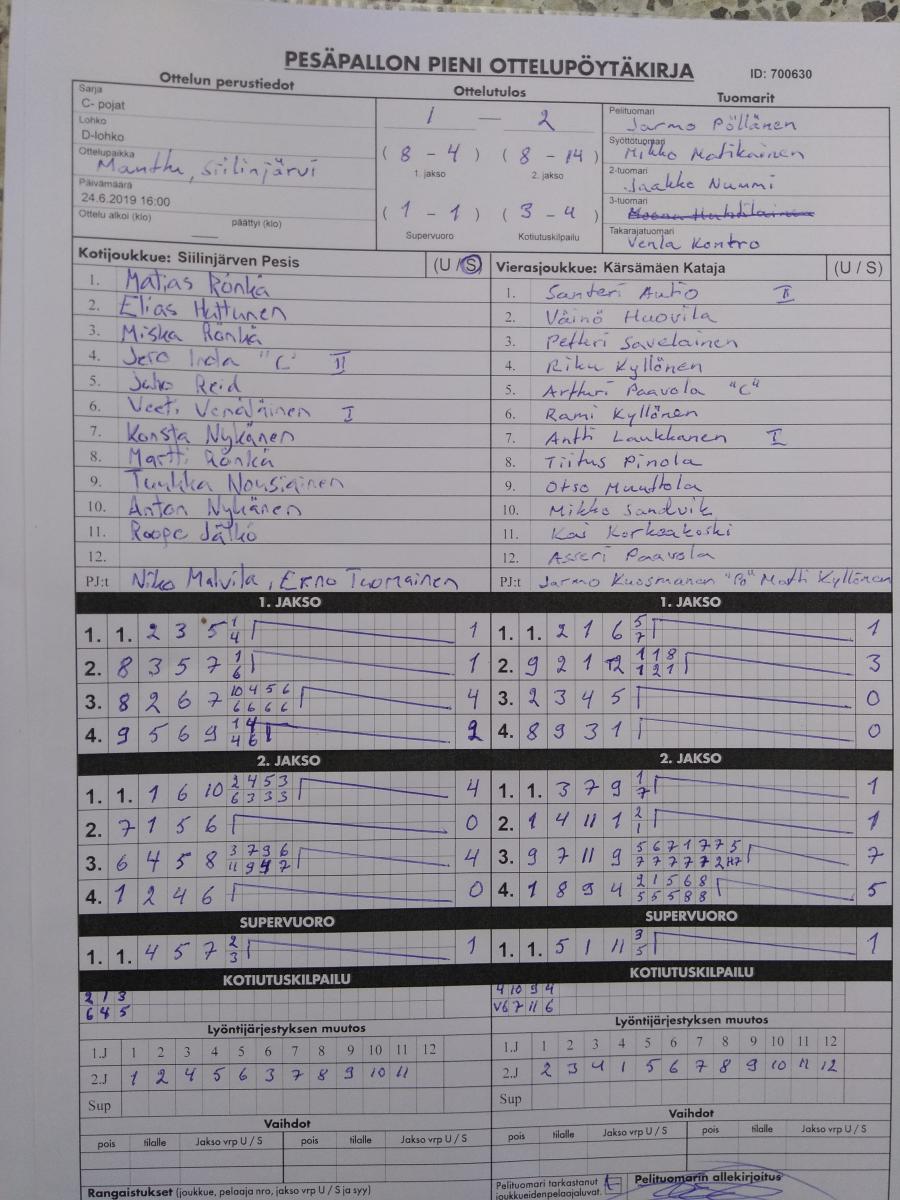 PESÄPALLON PIENI OTTELUPÖYTÄKIRJA
ID: 700630
Ottelun perustiedot
Ottelutulos
Tuomarit
Sarja
C- pojat
Lohko
D-lohko
Ottelupaikka
Manttu, Siilinjärvi
Päivämäärä
24.6.2019 16:00
Ottelu alkoi (klo) päättyi (klo)
1 — 2
( 8 - 4 ) ( 8 - 14 )
1. jakso 2. jakso
( 1 - 1 ) ( 3 - 4 )
Supervuoro Kotiutuskilpailu
Pelituomari
Jarmo Pöllänen
Syöttötuomari
Mikko Matikainen
2-tuomari
Jaakko Nummi
3-tuomari
Takarajatuomari
Venla Kontro
Kotijoukkue: Siilinjärven Pesis (U / S)
1. Matias Rönkä
2. Elias Huttunen
3. Miska Rönkä
4. Jero Inda "C" II
5. Juho Reid
6. Veeti Venäläinen I
7. Konsta Nykänen
8. Martti Rönkä
9. Tuukka Nousiainen
10. Anton Nykänen
11. Roope Jälkö
12.
PJ:t Niko Malvila, Erno Tuomainen
Vierasjoukkue: Kärsämäen Kataja (U / S)
1. Santeri Autio II
2. Väinö Huovila
3. Petteri Savelainen
4. Riku Kyllönen
5. Artturi Paavola "C"
6. Rami Kyllönen
7. Antti Laukkanen I
8. Tiitus Pinola
9. Otso Muuttola
10. Mikko Sandvik
11. Kai Korkeakoski
12. Asseri Paavola
PJ:t Jarmo Kuosmanen "PJ" Matti Kyllönen
1. JAKSO
1. 1. 2 3 5 1 1
4
2. 8 3 5 7 1 1
6
3. 8 2 6 7 10 4 5 6 4
6 6 6 6
4. 9 5 6 9 1 4 2
4 6
2. JAKSO
1. 1. 1 6 10 2 4 5 3 4
6 3 3 3
2. 7 1 5 6 0
3. 6 4 5 8 3 7 9 6 4
11 9 4 7
4. 1 2 4 6 0
SUPERVUORO
1. 1. 4 5 7 2 1
3
KOTIUTUSKILPAILU
2 1 3
6 4 5
Lyöntijärjestyksen muutos
1.J 1 2 3 4 5 6 7 8 9 10 11 12
2.J 1 2 4 5 6 3 7 8 9 10 11
Sup
Vaihdot
pois tilalle Jakso vrp U / S pois tilalle Jakso vrp U / S
Rangaistukset (joukkue, pelaaja nro, jakso vrp U / S ja syy)
1. JAKSO
1. 1. 2 1 6 5 1
7
2. 9 2 1 12 1 1 8 3
1 2 1
3. 2 3 4 5 0
4. 8 9 3 1 0
2. JAKSO
1. 1. 3 7 9 1 1
7
2. 1 4 11 1 2 1
1
3. 9 7 11 9 5 6 7 1 7 7 5 7
7 7 7 7 7 2
4. 1 8 9 4 2 1 5 6 8 5
5 5 5 8 8
SUPERVUORO
1. 1. 5 1 11 3 1
5
KOTIUTUSKILPAILU
4 10 9 4
V6 7 11 6
Lyöntijärjestyksen muutos
1.J 1 2 3 4 5 6 7 8 9 10 11 12
2.J 2 3 4 1 5 6 7 8 9 10 11 12
Sup
Vaihdot
pois tilalle Jakso vrp U / S pois tilalle Jakso vrp U / S
Pelituomari tarkastanut
joukkueidenpelaajaluvat.
Pelituomarin allekirjoitus